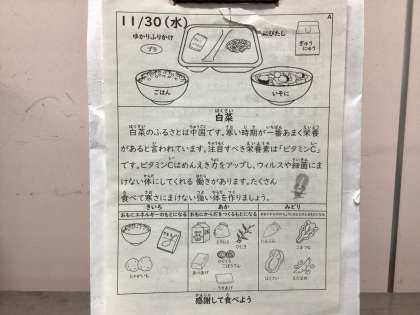 11/30(水)
A
ゆかりふりかけ
プラ
にびたし
ぎゅう
にゅう
ごはん
いそに
白菜
白菜のふるさとは中国です。寒い時期が一番あまく栄養
があると言われています。注目すべき栄養素は「ビタミンC」
です。ビタミンCはめんえき力をアップし、ウィルスや細菌にま
けない体にしてくれる働きがあります。たくさん
食べて寒さにまけない強い体を作りましょう。
きいろ あか みどり
おもにエネルギーのもとになる おもにからだをつくるもとになる
じゃがいも
ひじき
あぶらあげ
こまつな
はくさい
えだまめ
感謝して食べよう